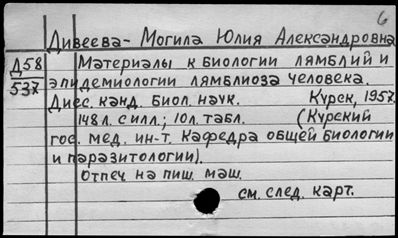 6
Дивеева-Могила Юлия Александровна
Д58
537
Материалы к биологии лямблий и
эпидемиологии лямблиоза человека.
Дисс. канд. биол. наук. Курск, 1957.
148л. с илл.; 10л. табл. (Курский
гос. мед. ин-т. Кафедра общей биологии
и паразитологии).
Отпеч. на пиш. маш.
см. след. карт.